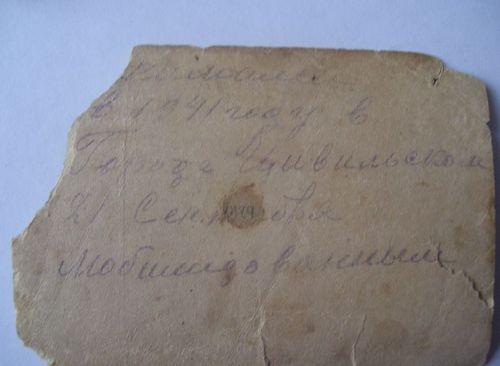 в 1941 году в
Городе Цивильском
21 Сентября
Мобилизованным